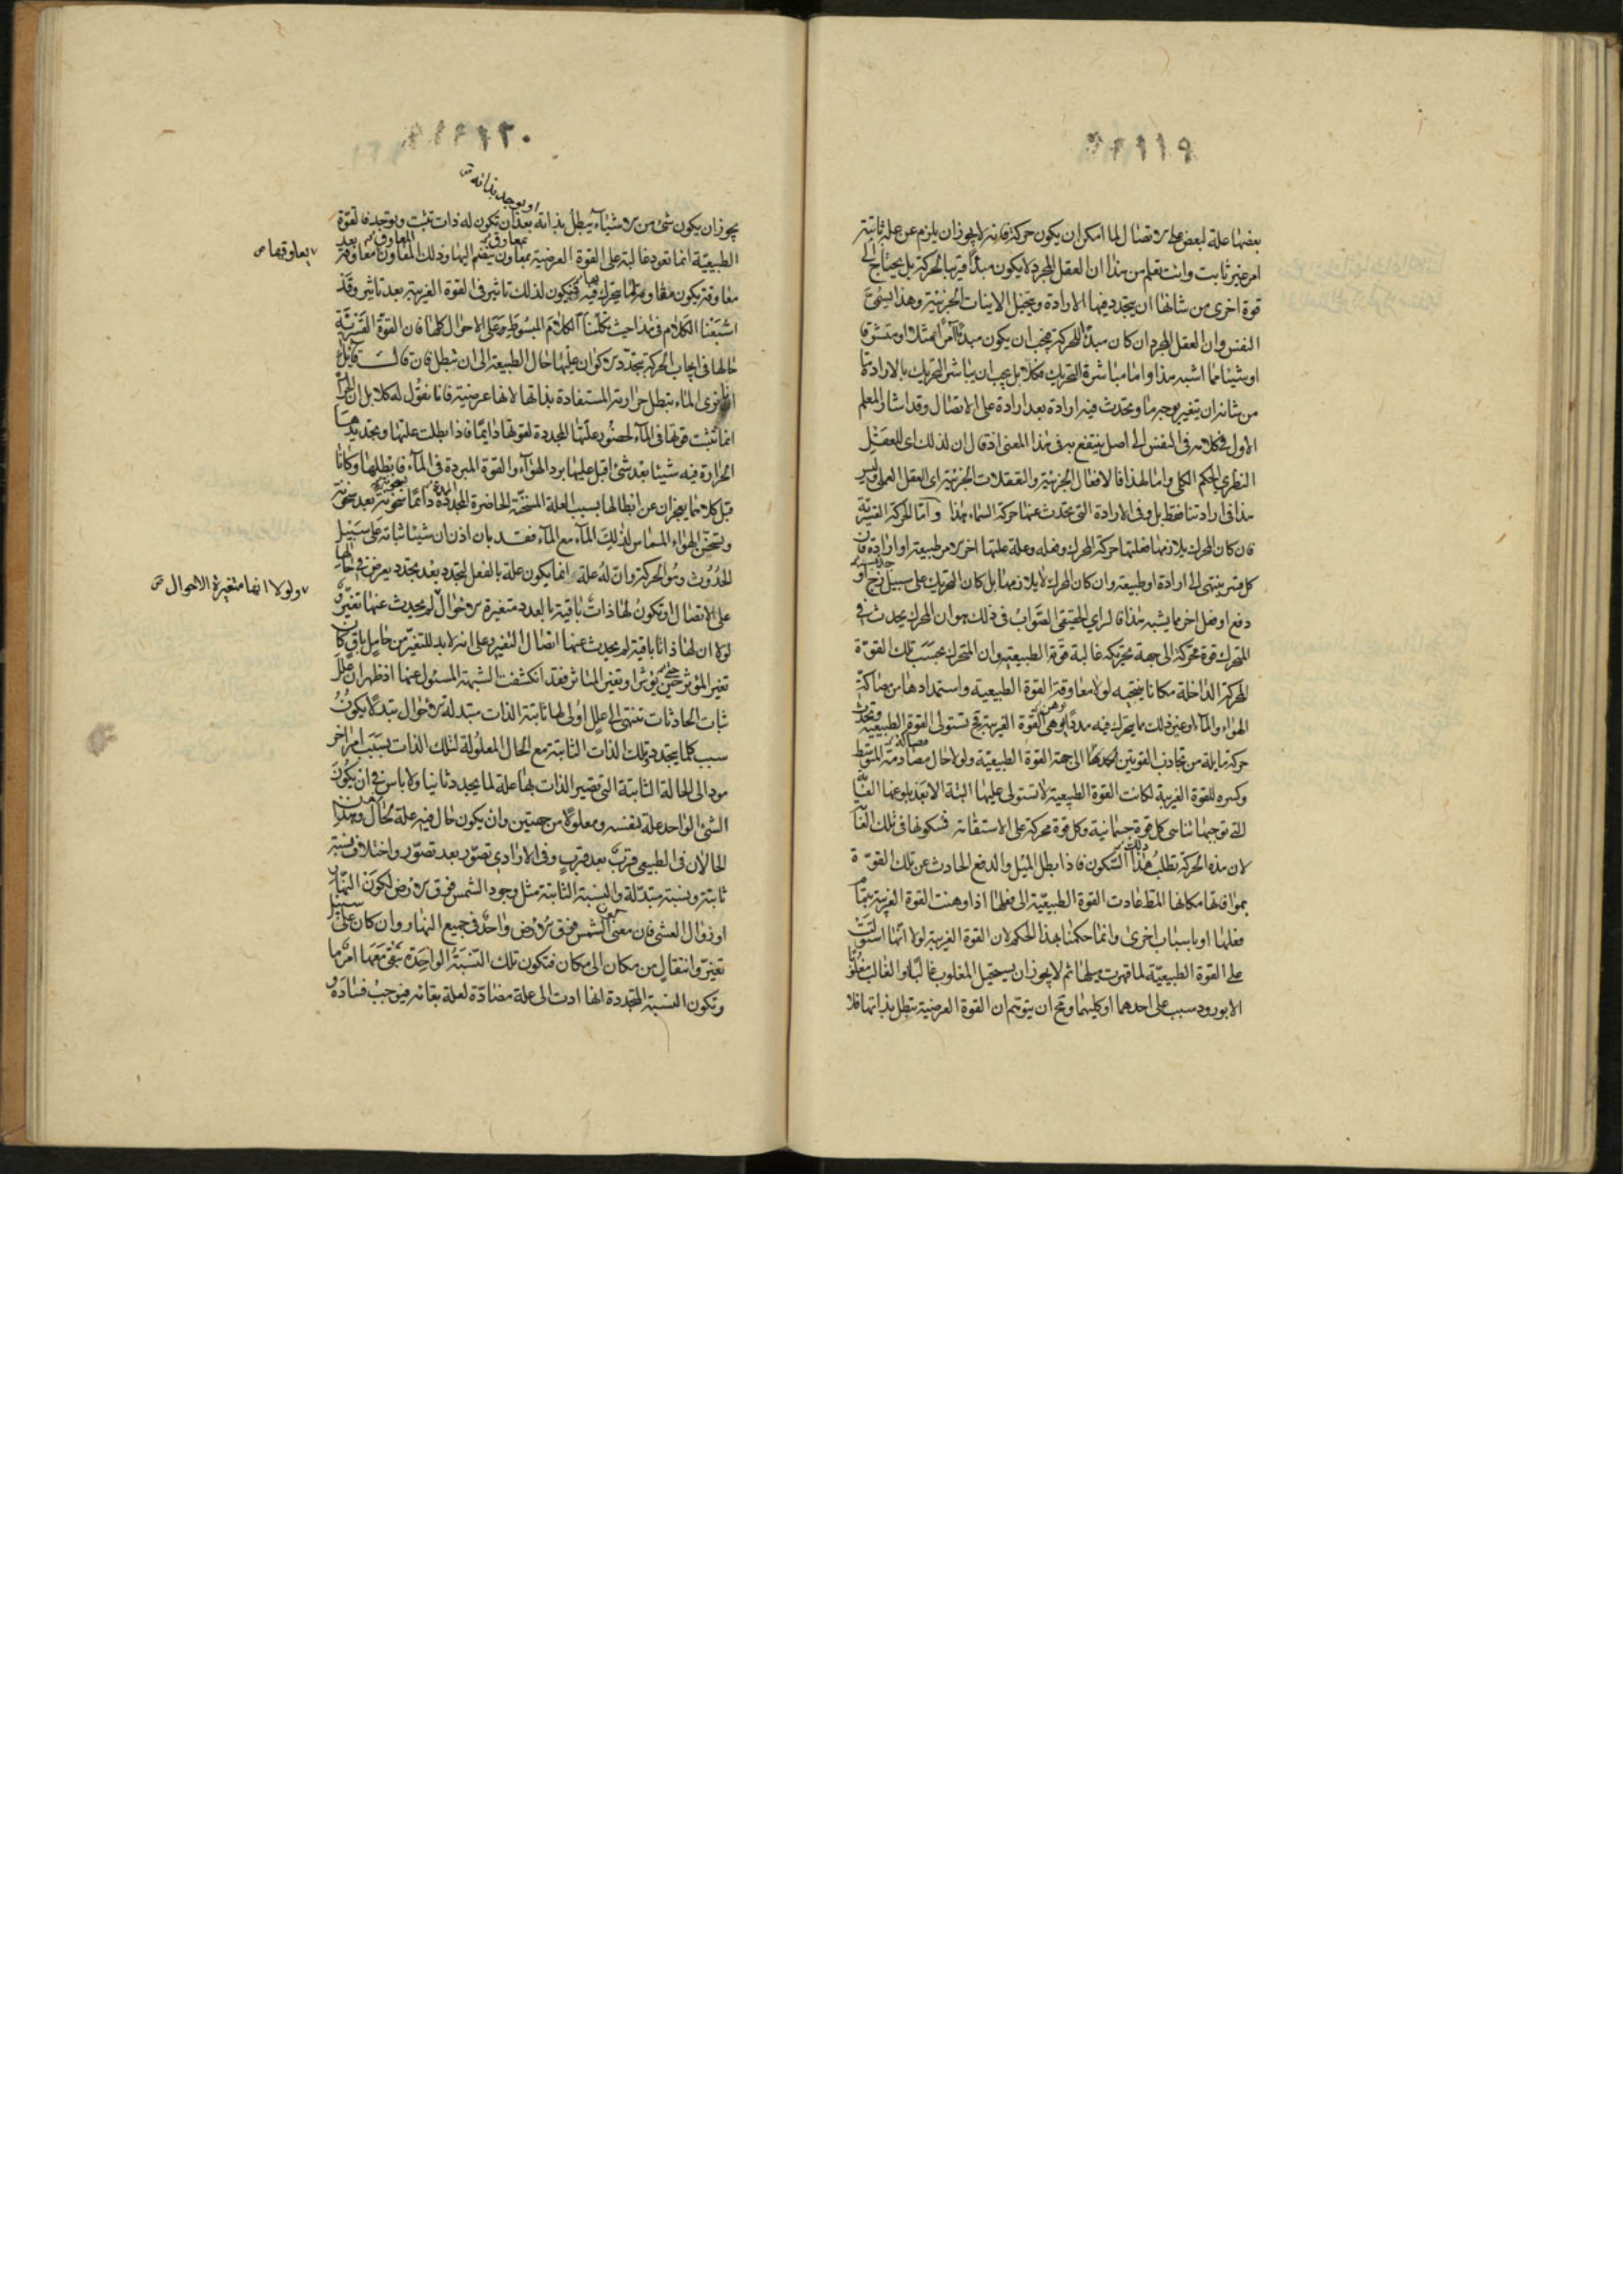 ١١٩
بعضها علة لبعض على الاتصال لما امكن ان يكون حركة فانه لا يجوز ان يلزم عن علة ثابتة
امر غير ثابت وانت تعلم من هذا ان العقل المجرد لا يكون مبدأ قريبا لحركة بل يحتاج الى
قوة اخرى من شانها ان يتجدد فيها الارادة ويتخيل الاينات الجزئية وهذا يسمى
النفس وان العقل المجرد ان كان مبدأ للحركة فيجب ان يكون مبدأ آمرا ممثلا او متشوقا
او شيئا مما اشبه هذا واما مباشرة التحريك فكلا بل يجب ان يباشر التحريك بالارادة ما
من شانه ان يتغير بوجه ما ويحدث فيه ارادة بعد ارادة على الاتصال وقد اشار المعلم
الاول في كلامه في النفس الى اصل ينتفع به في هذا المعنى اذ قال ان لذلك اى للعقل
النظري الحكم الكلي واما لهذا فالافعال الجزئية والتعقلات الجزئية اى العقل العملى وليس
هذا في ارادتنا فقط بل وفي الارادة التي تحدث عنها حركة السماء هذا واما الحركة القسرية
فان كان المحرك يلازمها فعلتها حركة المحرك وفعله وعلة علتها اخر الامر طبيعة او ارادة فان
كل قسر ينتهى الى ارادة او طبيعة وان كان المحرك لا يلازمها بل كان التحريك على سبيل زج او
جذب
دفع او فعل اخر مما يشبه هذا فالراي الحقيقى الصواب في ذلك هو ان المحرك يحدث في
المتحرك قوة محركة الى جهة تحريكه غالبة قوة الطبيعية وان المتحرك بحسب تلك القوة
المحركة الداخلة مكانا ينتحيه لولا معاوقة القوة الطبيعية واستمدادها من مصاكة
الهواء والماء او غير ذلك مما يتحرك فيه مددا يوهن القوة الغريبة فح تستولى القوة الطبيعية وتحدث
حركة مايلة من تجاذب القوتين الى جهة القوة الطبيعية ولولا حال مصادمة المتوسط
وكسره للقوة الغريبة لكانت القوة الطبيعية لا تستولى عليها البتة الا بعد بلوغها الغايا
التي توجبها تناسى كل قوة جسمانية وكل قوة محركة على الاستقامة فسكونها في تلك الغا
لان هذه الحركة تطلب هذا السكون فاذا بطل الميل والدفع الحادث عن تلك القوة
بموافاتها مكانها المط عادت القوة الطبيعية الى فعلها اذا وهنت القوة الغريبة بتمام
فعلها او باسباب اخرى وانما حكمنا هذا الحكم لان القوة الغريبة لولا انها استولت
على القوة الطبيعية لما قهرت ميلها ثم لا يجوز ان يستحيل المغلوب غالبا او الغالب مغلوبا
الا بورود سبب على احدهما او كليهما ومح ان يتوهم ان القوة العرضية تبطل بذاتها فلا
١٢٠
او يوجد بذاته
يجوز ان يكون شئ من الاشياء يبطل بذاته بعد ان تكون له ذات تثبت ويوجد فالقوة
الطبيعية انما تعود غالبة على القوة العرضية بمعاون ينضم اليها وذلك المعاون معاوقة بعد
بمعاوق
المعاوق
يعاوقها
معاوقة يكون مقاومة لما يتحرك فيه فيكون لذلك تاثير في القوة الغريبة بعد تاثير وقد
اشبعنا الكلام في هذا حيث تكلمنا الكلام المبسوط وعلى الاحوال كلها فان القوة القسرية
حالها في ايجاب الحركة بتجدد الاكوان عليها حال الطبيعة الى ان تبطل فان قال قايل
انا نرى الماء يبطل حرارته المستفادة بذاتها لانها عرضية فانا نقول له كلا بل ان الحرا
انما تثبت قوتها في الماء لحضور علتها المجددة لقوتها دايما فاذا بطلت علتها وتجديدها
الحرارة فيه شيئا بعد شئ اقبل عليها برد الهواء والقوة المبردة في الماء فابطلها وكانا
قبل كلاهما يعجزان عن ابطالها بسبب العلة المسخنة الحاضرة المجددة دائما سخونة بعد سخونة
وتسخن الهواء المماس لذلك الماء مع الماء فقد بان اذن ان شيئا ثباته على سبيل
الحدوث وهو الحركة وان له علة انما يكون علة بالفعل لتجدد بعد تجدد يعرض في حالها
على الاتصال وتكون لها ذات باقية بالعدد متغيرة الاحوال لم يحدث عنها تغير و
ولولا انها متغيرة الاحوال
لولا ان لها ذاتا باقية لم يحدث عنها اتصال التغير على انه لا بد للتغير من حامل باق كان
تغير المؤثر حتى يؤثر او تغير المتاثر فقد انكشفت الشبهة المسئول عنها اذ ظهر ان علل
ثبات الحادثات تنتهى الى علل اولى لها ثابتة الذات متبدلة الاحوال تبدلا يكون
سبب كلما يتجدد تلك الذات الثابتة مع الحال المعلولة لتلك الذات بسبب امر اخر
مود الى الحالة الثابتة التي تصير الذات بها علة لما يجدد ثانيا ولا باس في ان يكون
الشئ الواحد علة لنفسه ومعلولا من جهتين وان يكون حال فيه علة لحال وهذان
الحالان في الطبيعى قرب بعد قرب وفي الارادى تصور بعد تصور واختلاف نسبة
ثابتة ونسبة متبدلة والنسبة الثابتة مثل وجود الشمس فوق الارض لكون النهار
او زوال العشى فان معنى الشمس فوق الارض واحد في جميع النهار وان كان على سبيل
تغير وانتقال من مكان الى مكان فتكون تلك النسبة الواحدة تبقى معها امر ما
وتكون النسبة المتجددة انها ادت الى علة مضادة لعلة بقائه فيوجب فساده و